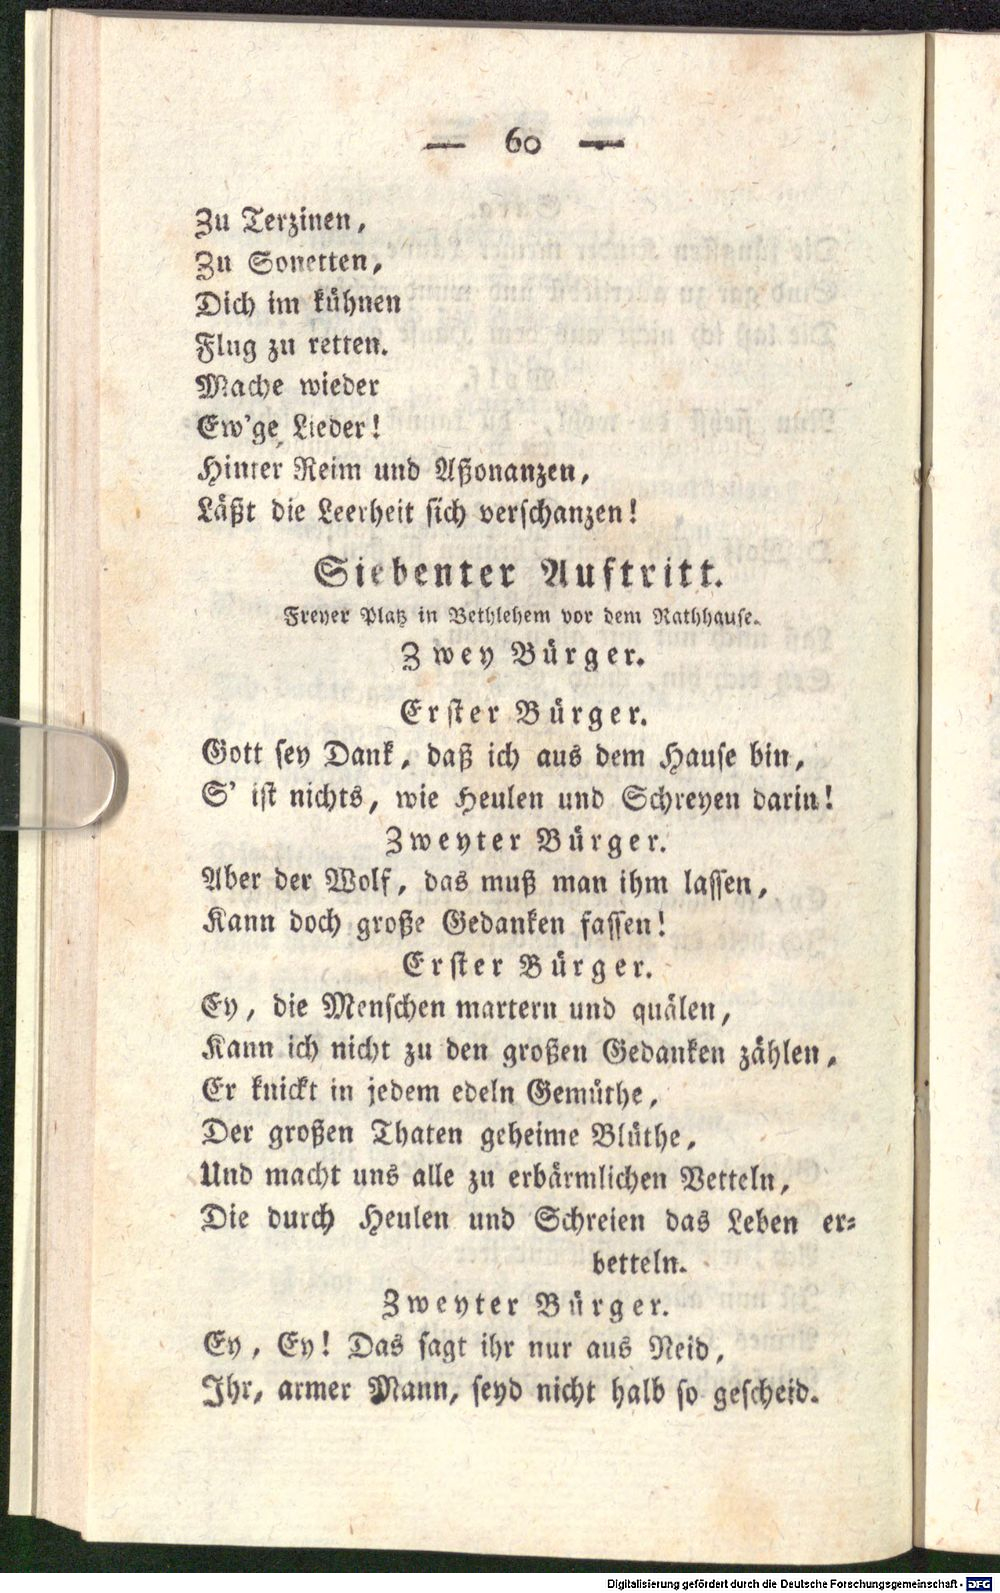 — 60 —
Zu Terzinen,
Zu Sonetten,
Dich im kühnen
Flug zu retten.
Mache wieder
Ew'ge Lieder!
Hinter Reim und Aßonanzen,
Läßt die Leerheit sich verschanzen!
Siebenter Auftritt.
Freyer Platz in Bethlehem vor dem Rathhause.
Zwey Bürger.
Erster Bürger.
Gott sey Dank, daß ich aus dem Hause bin,
S' ist nichts, wie Heulen und Schreyen darin!
Zweyter Bürger.
Aber der Wolf, das muß man ihm lassen,
Kann doch große Gedanken fassen!
Erster Bürger.
Ey, die Menschen martern und quälen,
Kann ich nicht zu den großen Gedanken zählen,
Er knickt in jedem edeln Gemüthe,
Der großen Thaten geheime Blüthe,
Und macht uns alle zu erbärmlichen Vetteln,
Die durch Heulen und Schreien das Leben er-
betteln.
Zweyter Bürger.
Ey, Ey! Das sagt ihr nur aus Neid,
Ihr, armer Mann, seyd nicht halb so gescheid.
Digitalisierung gefördert durch die Deutsche Forschungsgemeinschaft - DFG